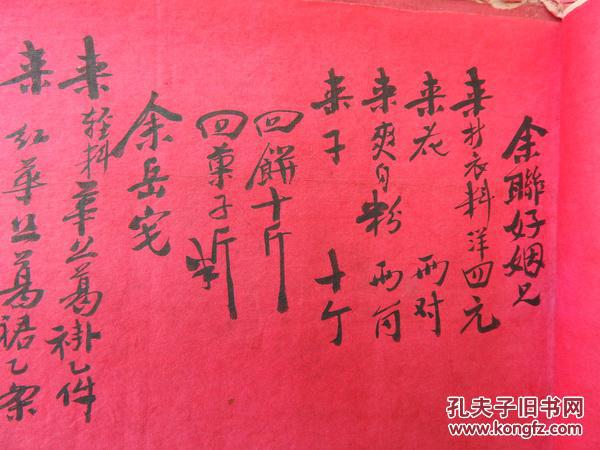 余聯好姻兄
来衣料洋四元
来花 兩对
来爽身粉 兩
来子 十个
回餅十斤
回菓子斤半
余岳宅
来料華丝葛褂乙件
来红華丝葛裙乙条
孔夫子旧书网
www.kongfz.com